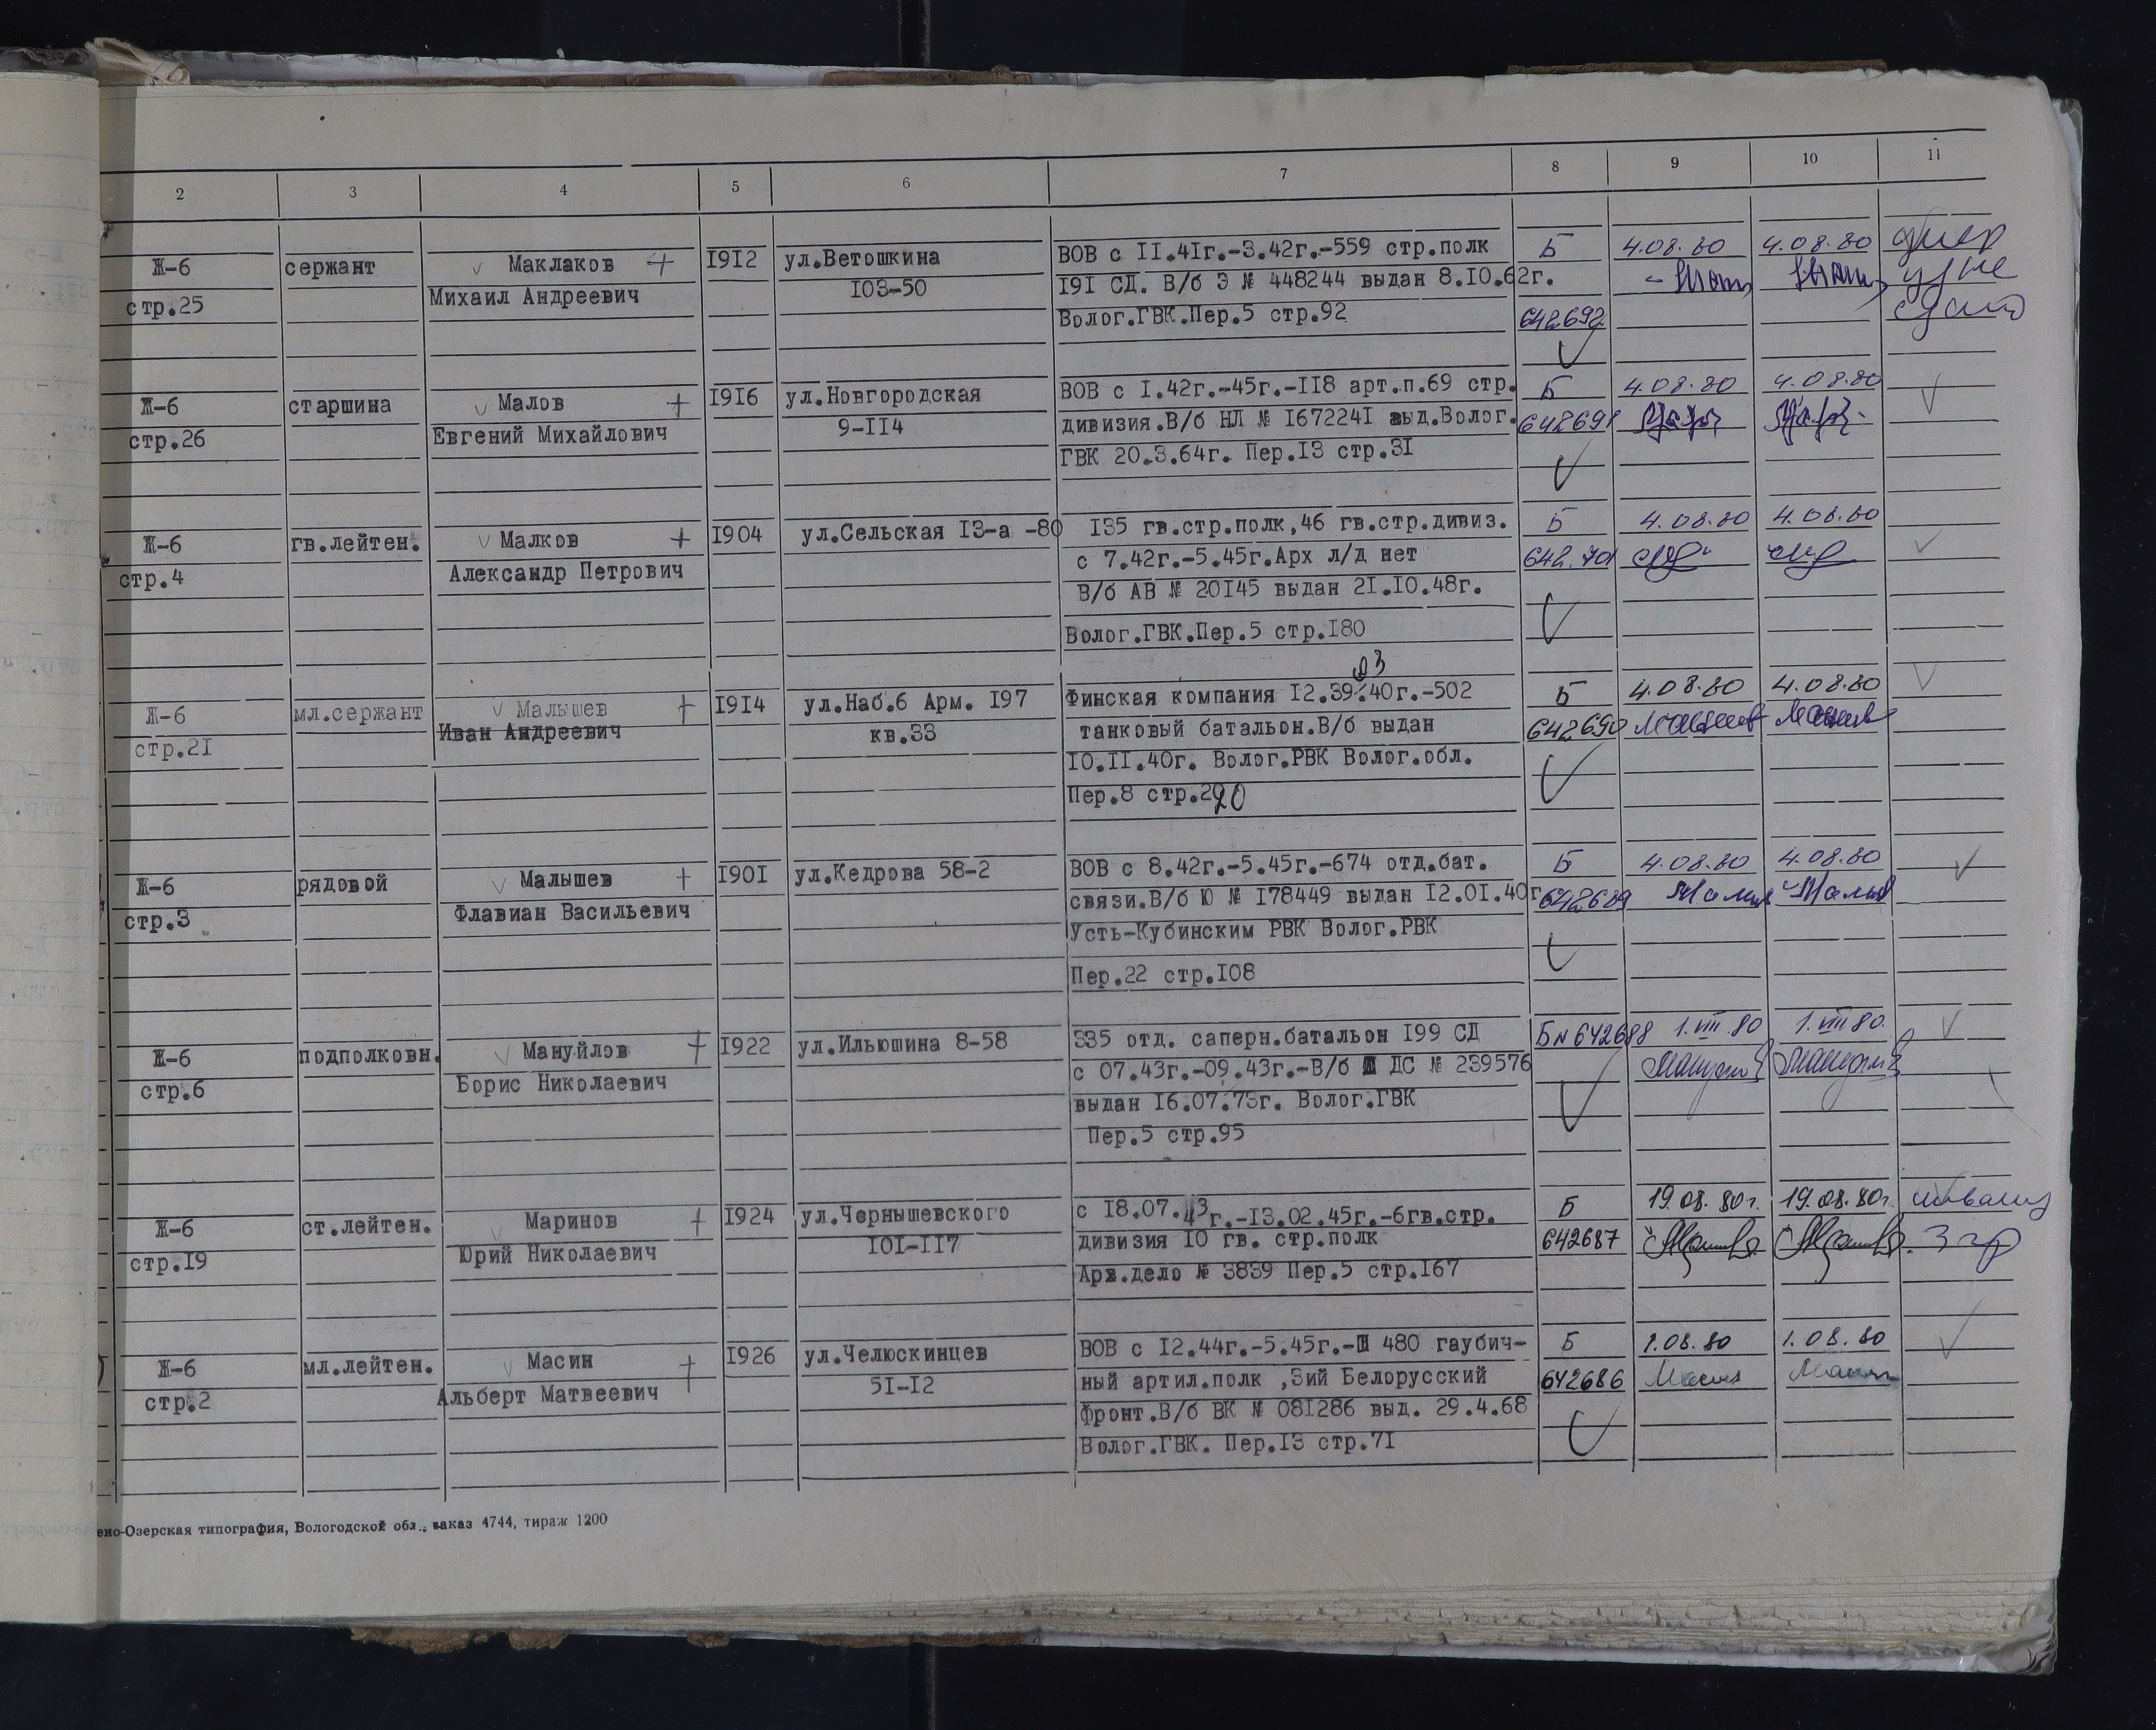 2 3 4 5 6 7 8 9 10 11
Ж-6 сержант Маклаков + 1912 ул.Ветошкина ВОВ с II.4Iг.-3.42г.-559 стр.полк Б 4.08.80 4.08.80
стр.25 Михаил Андреевич 103-50 I9I СД. В/б Э № 448244 выдан 8.IO.62г.
Волог.ГВК.Пер.5 стр.92 642692
Ж-6 старшина Малов + 1916 ул.Новгородская ВОВ с I.42г.-45г.-II8 арт.п.69 стр. Б 4.08.80 4.08.80
стр.26 Евгений Михайлович 9-II4 дивизия.В/б НЛ № I67224I выд.Волог. 642691
ГВК 20.3.64г. Пер.I3 стр.3I
Ж-6 гв.лейтен. Малков + 1904 ул.Сельская I3-а -80 I35 гв.стр.полк,46 гв.стр.дивиз. Б 4.08.80 4.08.80
стр.4 Александр Петрович с 7.42г.-5.45г.Арх л/д нет 642701
В/б АВ № 20I45 выдан 2I.IO.48г.
Волог.ГВК.Пер.5 стр.I80
03
Ж-6 мл.сержант Малышев + 1914 ул.Наб.6 Арм. I97 Финская компания I2.39.40г.-502 Б 4.08.80 4.08.80
стр.2I Иван Андреевич кв.33 танковый батальон.В/б выдан 642690 Малышев Малышев
IO.II.40г. Волог.РВК Волог.обл.
Пер.8 стр.220
Ж-6 рядовой Малышев + 1901 ул.Кедрова 58-2 ВОВ с 8.42г.-5.45г.-674 отд.бат. Б 4.08.80 4.08.80
стр.3 Флавиан Васильевич связи.В/б Ю № I78449 выдан I2.OI.40г. 642689
Усть-Кубинским РВК Волог.РВК
Пер.22 стр.I08
Ж-6 подполковн. Мануйлов + 1922 ул.Ильюшина 8-58 335 отд. саперн.батальон I99 СД Б№642688 1.VIII 80 1.VIII 80.
стр.6 Борис Николаевич с 07.43г.-09.43г.-В/б ДС № 239576
выдан I6.07.73г. Волог.ГВК
Пер.5 стр.95
Ж-6 ст.лейтен. Маринов + 1924 ул.Чернышевского с I8.07.43г.-I3.02.45г.-6гв.стр. Б 19.08.80г. 19.08.80г. инвалид
стр.I9 Юрий Николаевич IOI-II7 дивизия IO гв. стр.полк 642687 3 гр
Арх.дело № 3839 Пер.5 стр.I67
Ж-6 мл.лейтен. Масин + 1926 ул.Челюскинцев ВОВ с I2.44г.-5.45г.- 480 гаубич- Б 1.08.80 1.08.80
стр.2 Альберт Матвеевич 5I-I2 ный артил.полк ,3ий Белорусский 642686 Масин Масин
фронт.В/б ВК № 08I286 выд. 29.4.68
Волог.ГВК. Пер.I3 стр.7I
ено-Озерская типография, Вологодской обл., заказ 4744, тираж 1200